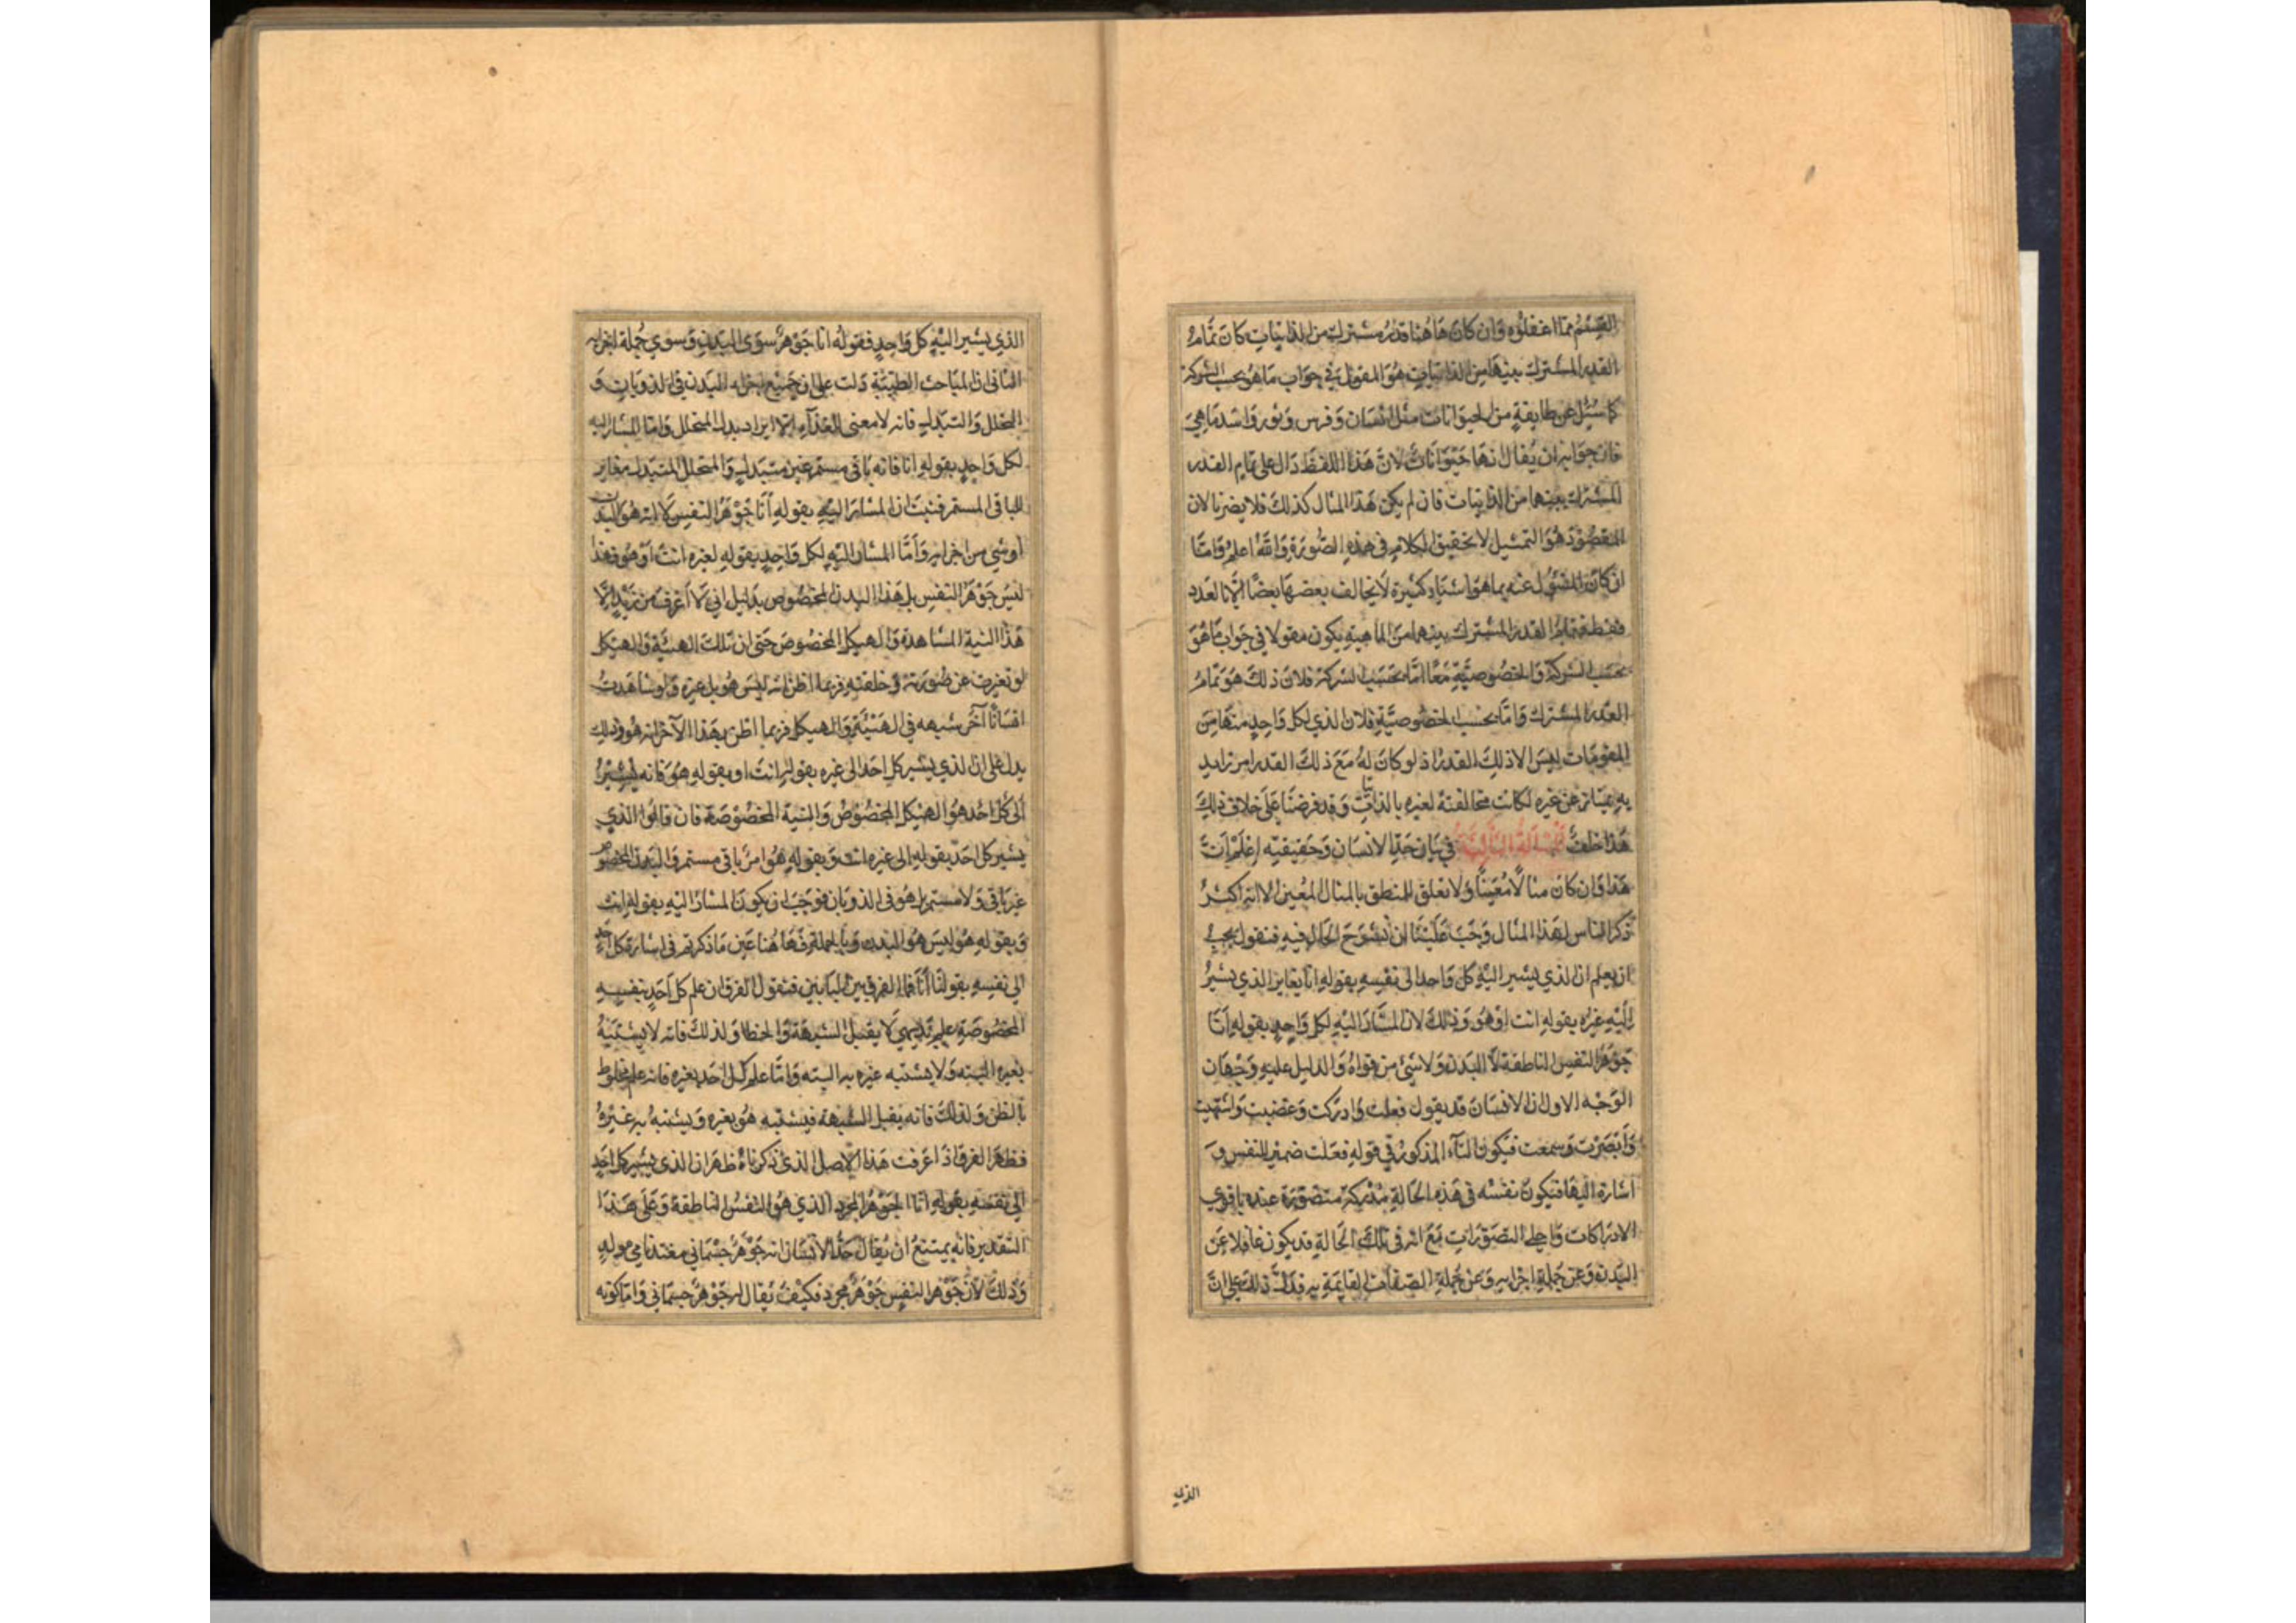 القسم مما اغفلوه وان كان هاهنا قدر مشترك من الذاتيات كان تمام
القدر المشترك بينها من الذاتيات هو المقول في جواب ما هو بحسب الشركة
كما سئل عن طايفة من الحيوانات مثل انسان وفرس وثور واسد ما هي
فان جوابه ان يقال انها حيوانات لان هذا اللفظ دال على تمام القدر
المشترك بينها من الذاتيات فان لم يكن هذا المثال كذلك فلا يضرنا لان
المقصود هو التمثيل لا تحقيق الكلام في هذه الصورة والله اعلم واما
ان كان المسؤل عنه بما هو اشياء كثيرة لا يخالف بعضها بعضا الا بالعدد
فقط فتمام القدر المشترك بينهما من الماهية يكون مقولا في جواب ما هو
بحسب الشركة والخصوصية معا اما بحسب الشركة فلان ذلك هو تمام
القدر المشترك واما بحسب الخصوصية فلان الذي لكل واحد منها من
المقومات ليس الا ذلك القدر اذ لو كان له مع ذلك القدر امر زايد
به يمتاز عن غيره لكانت مخالفته لغيره بالذاتيات وقد فرضنا على خلاف ذلك
هذا خلف المسالة الثالثة في بيان حد الانسان وحقيقته اعلم ان
هذا وان كان مثالا معينا ولا تعلق للمنطق بالمثال المعين الا انه اكثر
ذكر الناس لهذا المثال وجب علينا ان نشرح الحال فيه فنقول يجب
ان يعلم ان الذي يشير اليه كل واحد الى نفسه بقوله انا يغاير الذي يشير
اليه غيره بقوله انت او هو وذلك لان المشار اليه لكل واحد بقوله انا
جوهر النفس الناطقة لا البدن ولا شئ من قواه والدليل عليه وجهان
الوجه الاول ان الانسان قد يقول فعلت وادركت وغضبت واشتهيت
وابصرت وسمعت فيكون التاء المذكور في قوله فعلت ضمير النفس و
اشارة اليها فيكون نفسه في هذه الحالة مدركة متصورة عنده باقوى
الادراكات واجلى التصورات مع انه في تلك الحالة قد يكون غافلا عن
البدن وعن جملة اجزايه وعن جملة الصفات القايمة به فدل ذلك على ان
الذي
الذي يشير اليه كل واحد فقوله انا جوهر سوى البدن وسوى جملة اجزايه
الثاني ان المباحث الطبية دلت على ان جميع اجزاء البدن في الذوبان و
التحلل والتبدل فانه لا معنى للغذاء الا ايراد بدل المتحلل واما المشار اليه
لكل واحد بقوله انا فانه باقي مستمر غير متبدل والمتحلل المتبدل مغاير
للباقي المستمر فثبت ان المشار اليه بقوله انا جوهر النفس لا انه هو البدن
او شي من اجزايه واما المشار اليه لكل واحد بقوله لغيره انت او هو فهذا
ليس جوهر النفس بل هذا البدن المخصوص بدليل اني لا اعرف من زيد الا
هذا البنية المشاهدة والهيكل المخصوص حتى ان تلك الهيئة والهيكل
لو تغيرت عن صورته وخلقته فربما اظن انه ليس هو بل غيره ولو شاهدت
انسانا آخر شبيهه في الهيئة والهيكل فربما اظن بهذا الآخر انه هو وذلك
يدل على ان الذي يشير كل احد الى غيره بقوله انت او بقوله هو فانه يشير
الى كل احد هو الهيكل المخصوص والبنية المخصوصة فان قالوا الذي
يشير كل احد بقوله الى غيره انت وبقوله هو امر باقي مستمر والبدن المخصوص
غير باقي ولا مستمر بل هو في الذوبان فوجب ان يكون المشار اليه بقوله انت
وبقوله هو ليس هو البدن وبالجملة فهاهنا عين ما ذكرتم في اشارة كل احد
الى نفسه بقولنا انا فما الفرق بين البابين فنقول الفرق ان علم كل احد بنفسه
المخصوصة علم بديهي لا يقبل الشبهة والخطا ولذلك فانه لا يشتبه
بغيره البته ولا يشتبه غيره به البته واما علم كل احد بغيره فانه علم مخلوط
بالظن ولذلك فانه يقبل الشبهة فيشتبه هو بغيره ويشتبه به غيره
فظهر الفرق اذا عرفت هذا الاصل الذي ذكرناه ظهر ان الذي يشير كل احد
الى نفسه بقوله انا الجوهر المجرد الذي هو النفس الناطقة وعلى هذا
التقدير فانه يمتنع ان يقال حد الانسان انه جوهر جسماني مغتذ نامي مولد
وذلك لان جوهر النفس جوهر مجرد فكيف يقال انه جوهر جسماني واما كونه